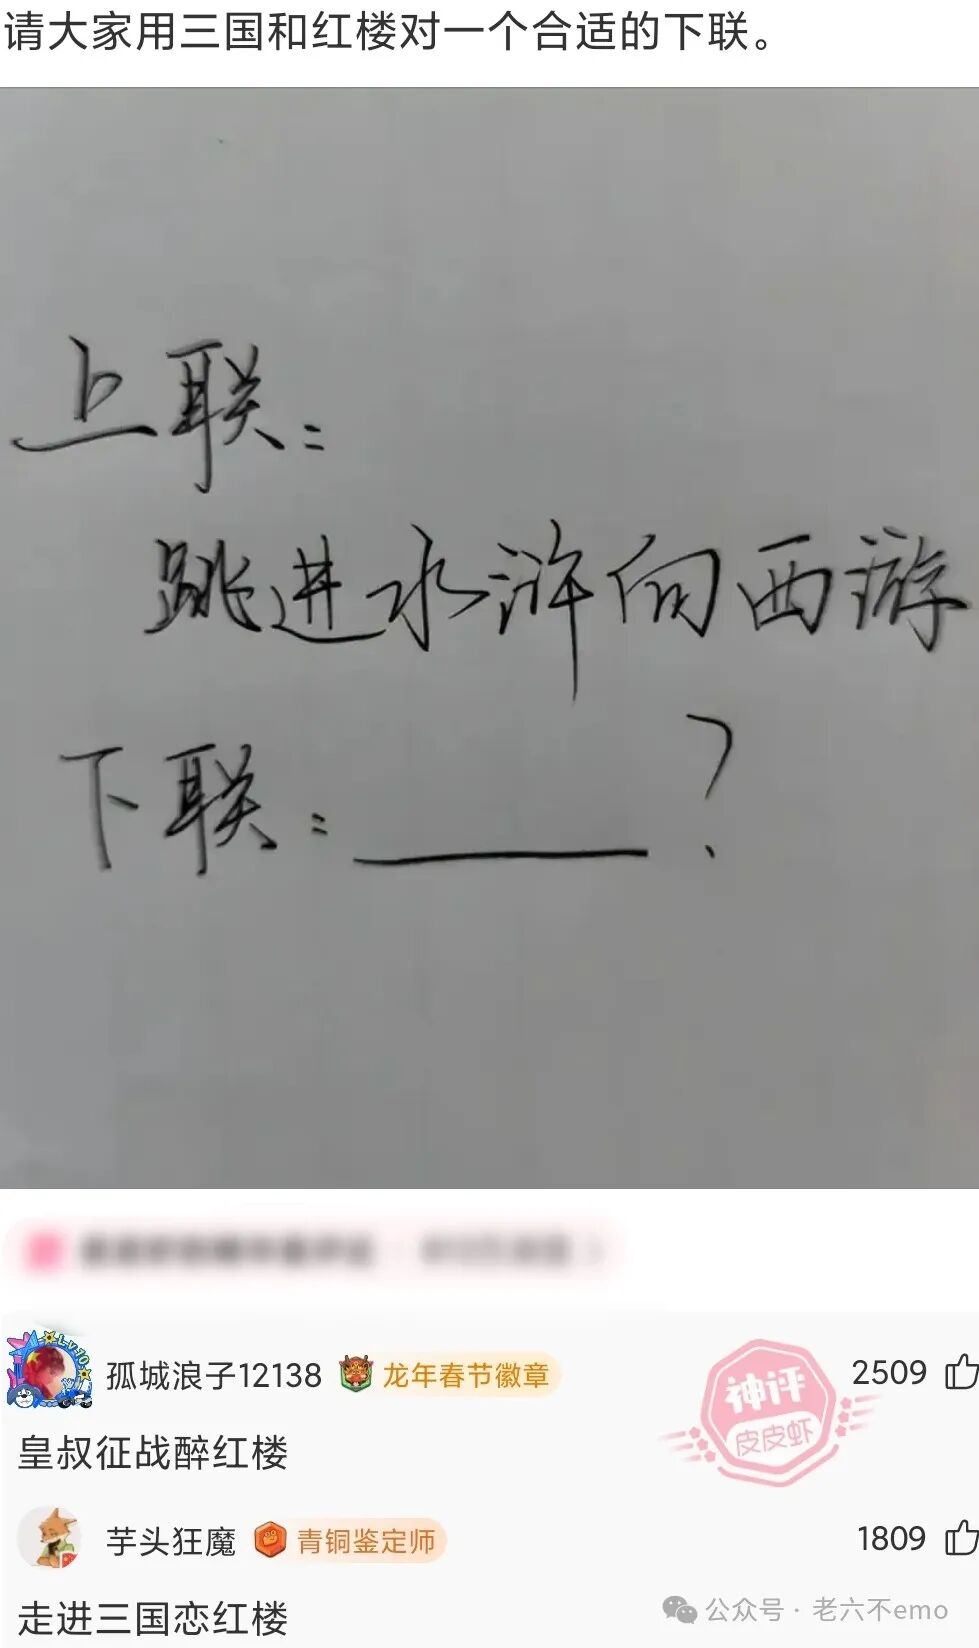 请大家用三国和红楼对一个合适的下联。
上联：
跳进水浒向西游
下联：______？
孤城浪子12138 龙年春节徽章 2509
神评
皮皮虾
皇叔征战醉红楼
芋头狂魔 青铜鉴定师 1809
走进三国恋红楼
公众号 · 老六不emo